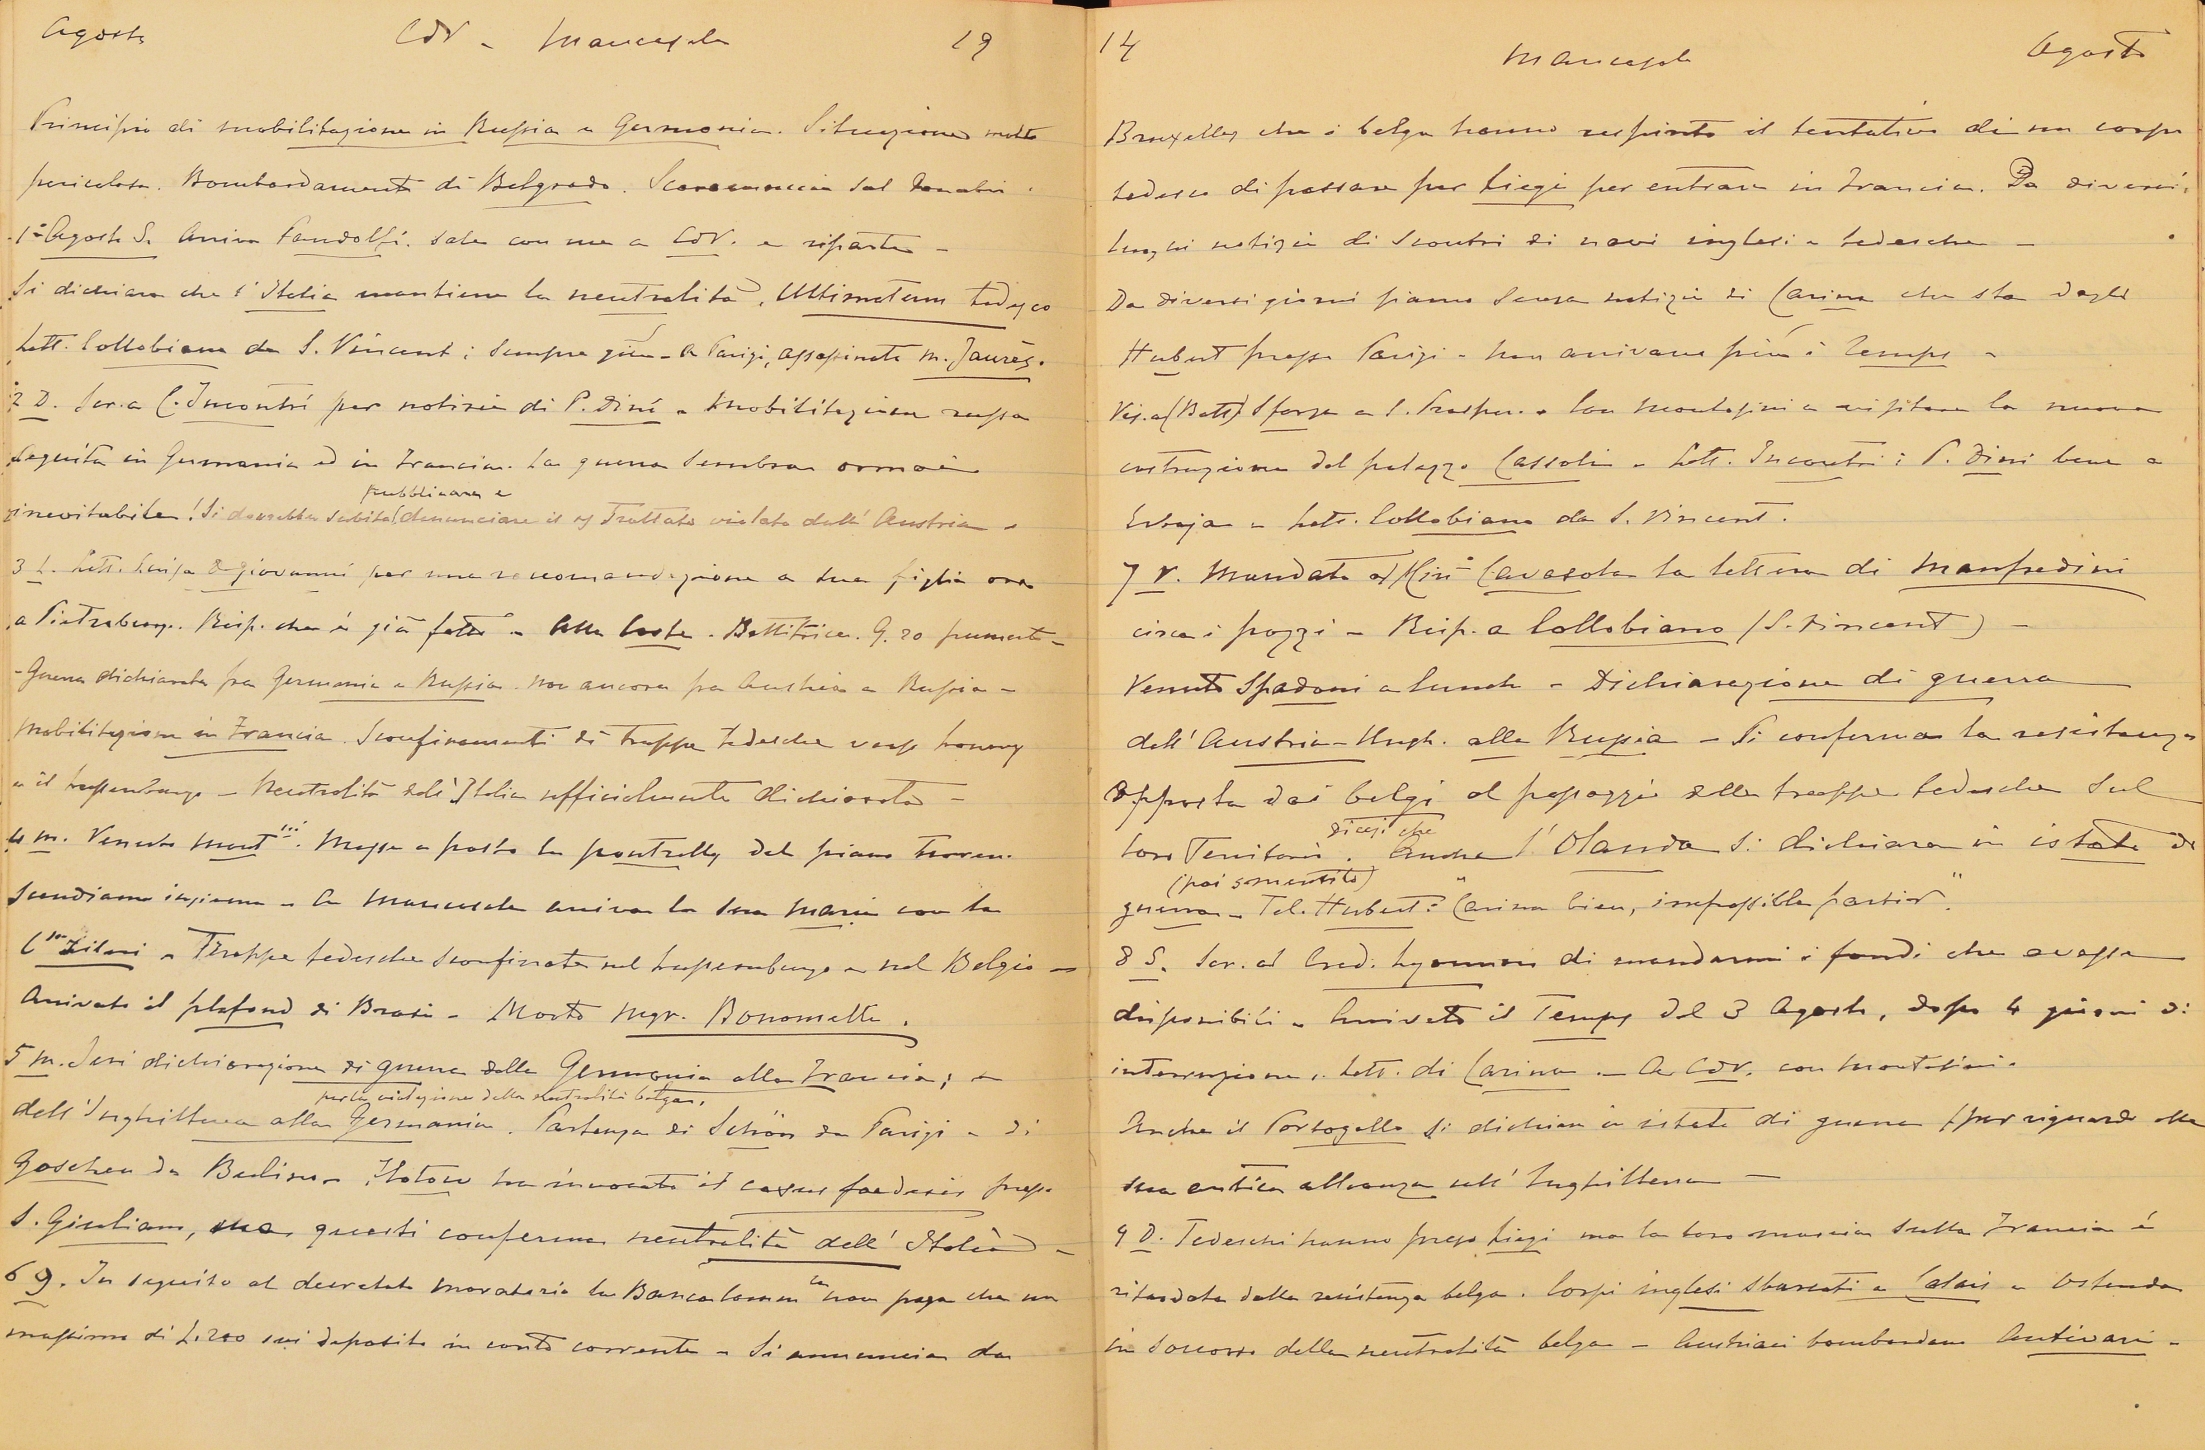 Agosto CdV - Mancasale 19
Principio di mobilitazione in Russia e Germania. Situazione molto
pericolosa. Bombardamento di Belgrado. Scaramuccia sul Danubio.
1° Agosto S. Arriva Pandolfi. Sale con me a CdV. e riparte -
Si dichiara che l'Italia mantiene la neutralità. Ultimatum tedesco
Lett. Collobiano da S. Vincent: sempre giù - A Parigi, assassinato M. Jaurès.
2 D. Scr. a C. Incontri per notizie di P. Dini - Mobilitazione russa
seguita in Germania ed in Francia. La guerra sembra ormai
pubblicare e
inevitabile! Si dovrebbe subito denunciare il Trattato violato dall'Austria -
3 L. Lett. Luisa Degiovanni per una raccomandazione a sua figlia ora
a Pietroburgo. Risp. che è già fatto - Alla Costa. Battitrice. Q. 20 frumento -
- Guerra dichiarata fra Germania e Russia. non ancora fra Austria e Russia -
Mobilitazione in Francia. Sconfinamenti di truppe tedesche verso Longwy
e il Lussemburgo - Neutralità dell'Italia ufficialmente dichiarata -
4 M. Venuto Mont.ni. Messe a posto le poutrelles del piano terreno.
Scendiamo insieme - A Mancasale arriva la Sra Maria con la
C.ssa Zileri - Truppe tedesche sconfinate nel Lussemburgo e nel Belgio -
Arrivato il plafond di Brasi - Morto Mgr. Bonomelli.
5 M. Ieri dichiarazione di guerra della Germania alla Francia; e
per la violazione della neutralità belga.
dell'Inghilterra alla Germania. Partenza di Schön da Parigi e di
Goschen da Berlino - Flotow ha invocato il casus foederis presso
S. Giuliano, ma questi conferma neutralità dell'Italia -
6 G. In seguito al decretato moratorio la Banca Comm.le non paga che un
massimo di L. 200 sui depositi in conto corrente - Si annuncia da
14 Mancasale Agosto
Bruxelles che i belga hanno respinto il tentativo di un corpo
tedesco di passare per Liegi per entrare in Francia. Da diversi
luoghi notizie di scontri di navi inglesi e tedesche -
Da diversi giorni siamo senza notizie di Carina che sta dagli
Hubert presso Parigi - Non arrivano più i Temps -
Vis. a (Batt.) Sforza a S. Prospero. Con Montesini a visitare la nuova
costruzione del palazzo Cassoli - Lett. Incontri: P. Dini bene a
- Lett. Collobiano da S. Vincent.
7 V. Mandato al Min° Cavasola la lettera di Manfredini
circa i pozzi - Risp. a Collobiano (S. Vincent) -
Venuto Spadoni a lunch - Dichiarazione di guerra
dell'Austria-Ungh. alla Russia - Si conferma la resistenza
opposta dai belgi al passaggio delle truppe tedesche sul
dicesi che
loro Territorio. Anche l'Olanda si dichiara in istato di
(poi smentito)
guerra - Tel. Hubert: "Carina bien, impossible partir".
8 S. Scr. al Cred. Lyonnais di mandarmi i fondi che avesse
disponibili - Arrivato il Temps del 3 Agosto, dopo 4 giorni di
interruzione. Lett. di Carina. - A CdV. con Montesini.
Anche il Portogallo si dichiara in istato di guerra per riguardo alla
sua antica alleanza coll'Inghilterra -
9 D. Tedeschi hanno preso Liegi ma la loro marcia sulla Francia è
ritardata dalla resistenza belga. Corpi inglesi sbarcati a Calais e Ostenda
in soccorso della neutralità belga - Austriaci bombardano Antivari -